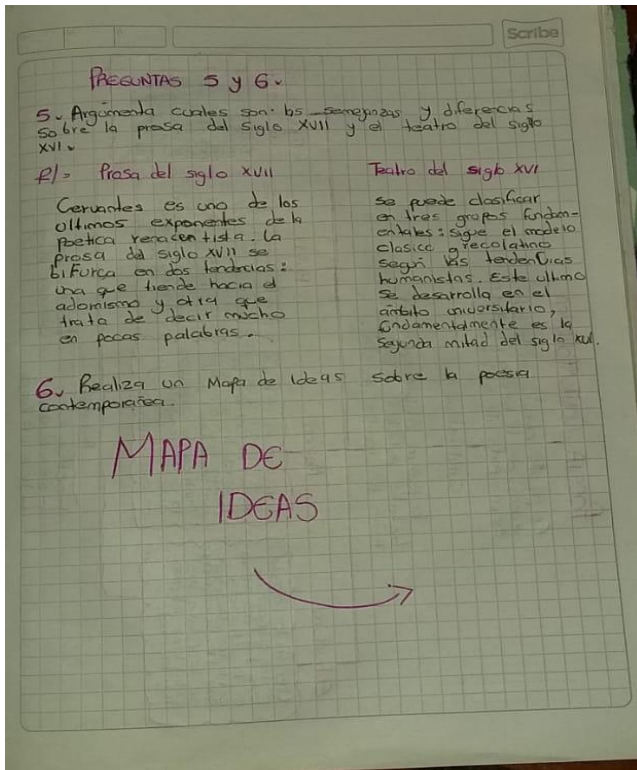 Scribe
PREGUNTAS 5 y 6.
5. Argumenta cuales son los semejanzas y diferecias
sobre la prosa del siglo XVII y el teatro del siglo
XVI.
R/= Prosa del siglo XVII
Cervantes es uno de los
ultimos exponentes de la
poetica renacentista. La
prosa del siglo XVII se
bifurca en dos tendncias:
una que tiende hacia el
adornismo y otra que
trata de decir mucho
en pocas palabras.
Teatro del siglo XVI
se puede clasificar
en tres grupos fundam-
entales: sigue el modelo
clasico grecolatino
segun las tendencias
humanistas. Este ultimo
se desarrolla en el
ámbito universitario,
fundamentalmente es la
segunda mitad del siglo XVI.
6. Realiza un Mapa de Ideas sobre la poesia
contemporañea.
MAPA DE
IDEAS